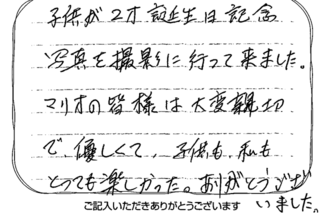 子供が2才誕生日記念
写真を撮影に行って来ました。
マリオの皆様は大変親切
で、優しくて、子供も、私も
とっても楽しかった。ありがとうござ
いました。
ご記入いただきありがとうございます